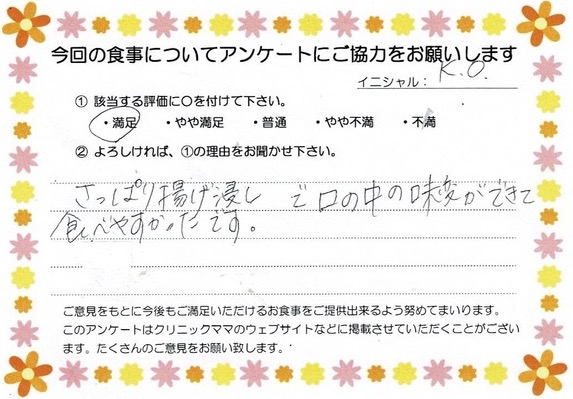 今回の食事についてアンケートにご協力をお願いします
イニシャル： K.O.
① 該当する評価に〇を付けて下さい。
・満足 ・やや満足 ・普通 ・やや不満 ・不満
② よろしければ、①の理由をお聞かせ下さい。
さっぱり揚げ浸しで口の中の味変ができて
食べやすかったです。
ご意見をもとに今後もご満足いただけるお食事をご提供出来るよう努めてまいります。
このアンケートはクリニックママのウェブサイトなどに掲載させていただくことがござい
ます。たくさんのご意見をお願い致します。